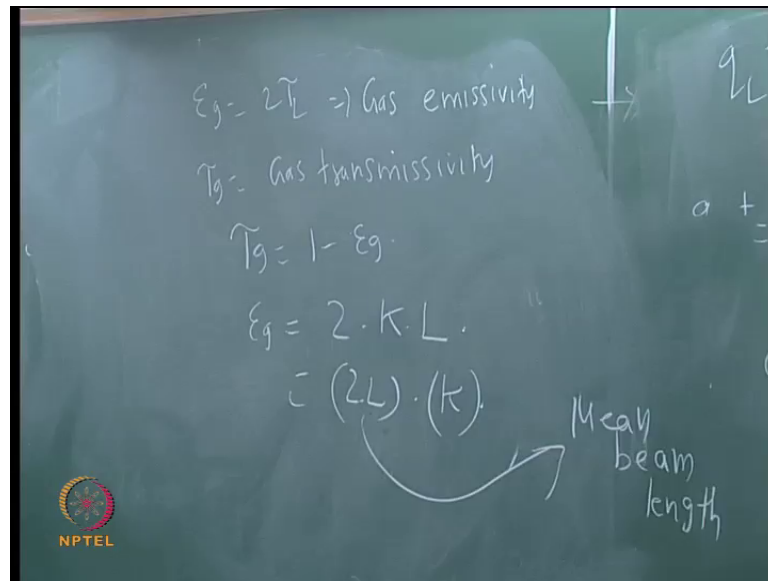 εg = 2τL => Gas emissivity
τg = Gas transmissivity
τg = 1 - εg.
εg = 2.K.L.
= (2.L).(K).
Mean
beam
length
qL
a +
=
NPTEL